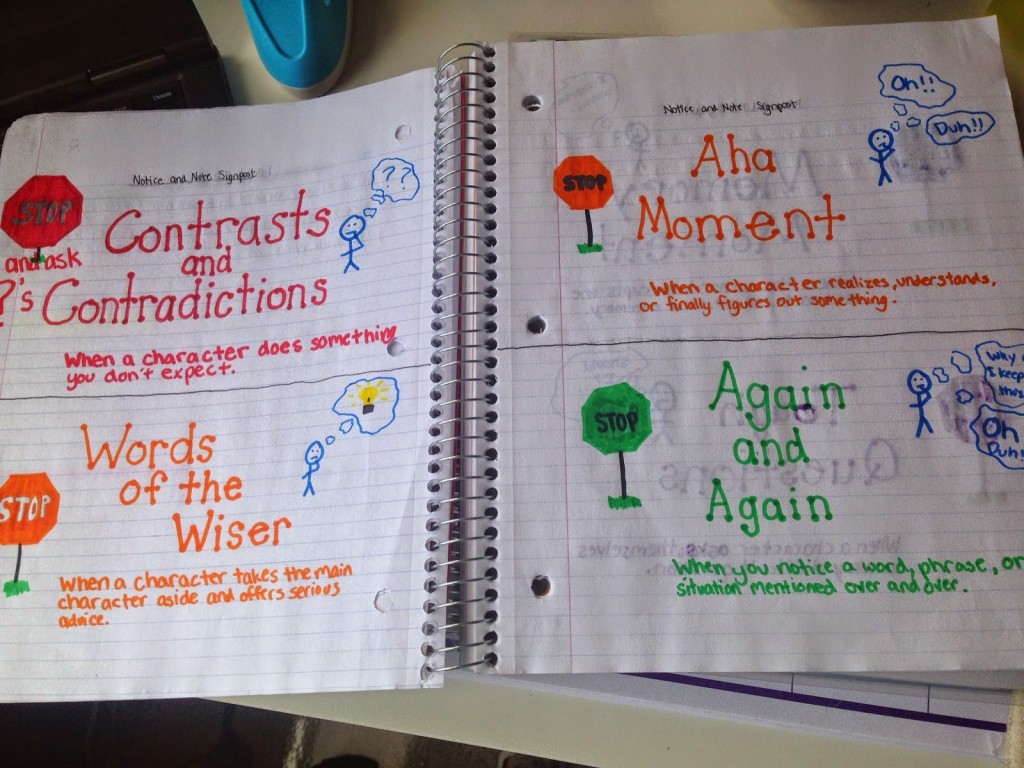 Notice and Note Signpost
STOP
and ask
?'s
Contrasts
and
Contradictions
??
When a character does something
you don't expect.
STOP
Words
of the
Wiser
When a character takes the main
character aside and offers serious
advice.
Notice and Note Signpost
STOP
Aha
Moment
Oh!!
Duh!!
When a character realizes, understands,
or finally figures out something.
STOP
Again
and
Again
Why
I keep
this
Oh
Duh!
When you notice a word, phrase, or
situation mentioned over and over.